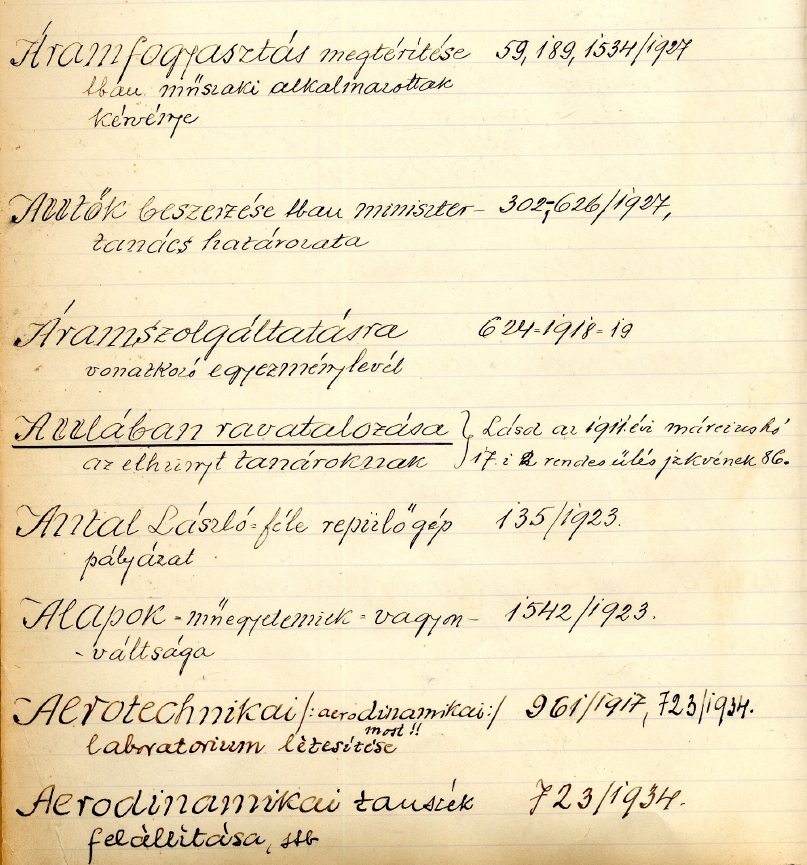 Áramfogyasztás megtérítése 59, 189, 1534/1927
tbau műszaki alkalmazottak
kérvénye
Autók beszerzése tbau miniszter- 302-626/1927,
tanács határozata
Áramszolgáltatásra 624-1918-19
vonatkozó egyezménylevél
Aulában ravatalozása } Lásd az 1911. évi március hó
az elhunyt tanároknak 17. i 2 rendes ülés jzkvének 86.
Antal László-féle repülőgép 135/1923.
pályázat
Alapok -műegyetemiek- vagyon- 1542/1923.
-váltsága
Aerotechnikai /:aerodinamikai:/ 961/1917, 723/1934.
most!!
laboratorium létesítése
Aerodinamikai tanszék 723/1934.
felállítása, stb